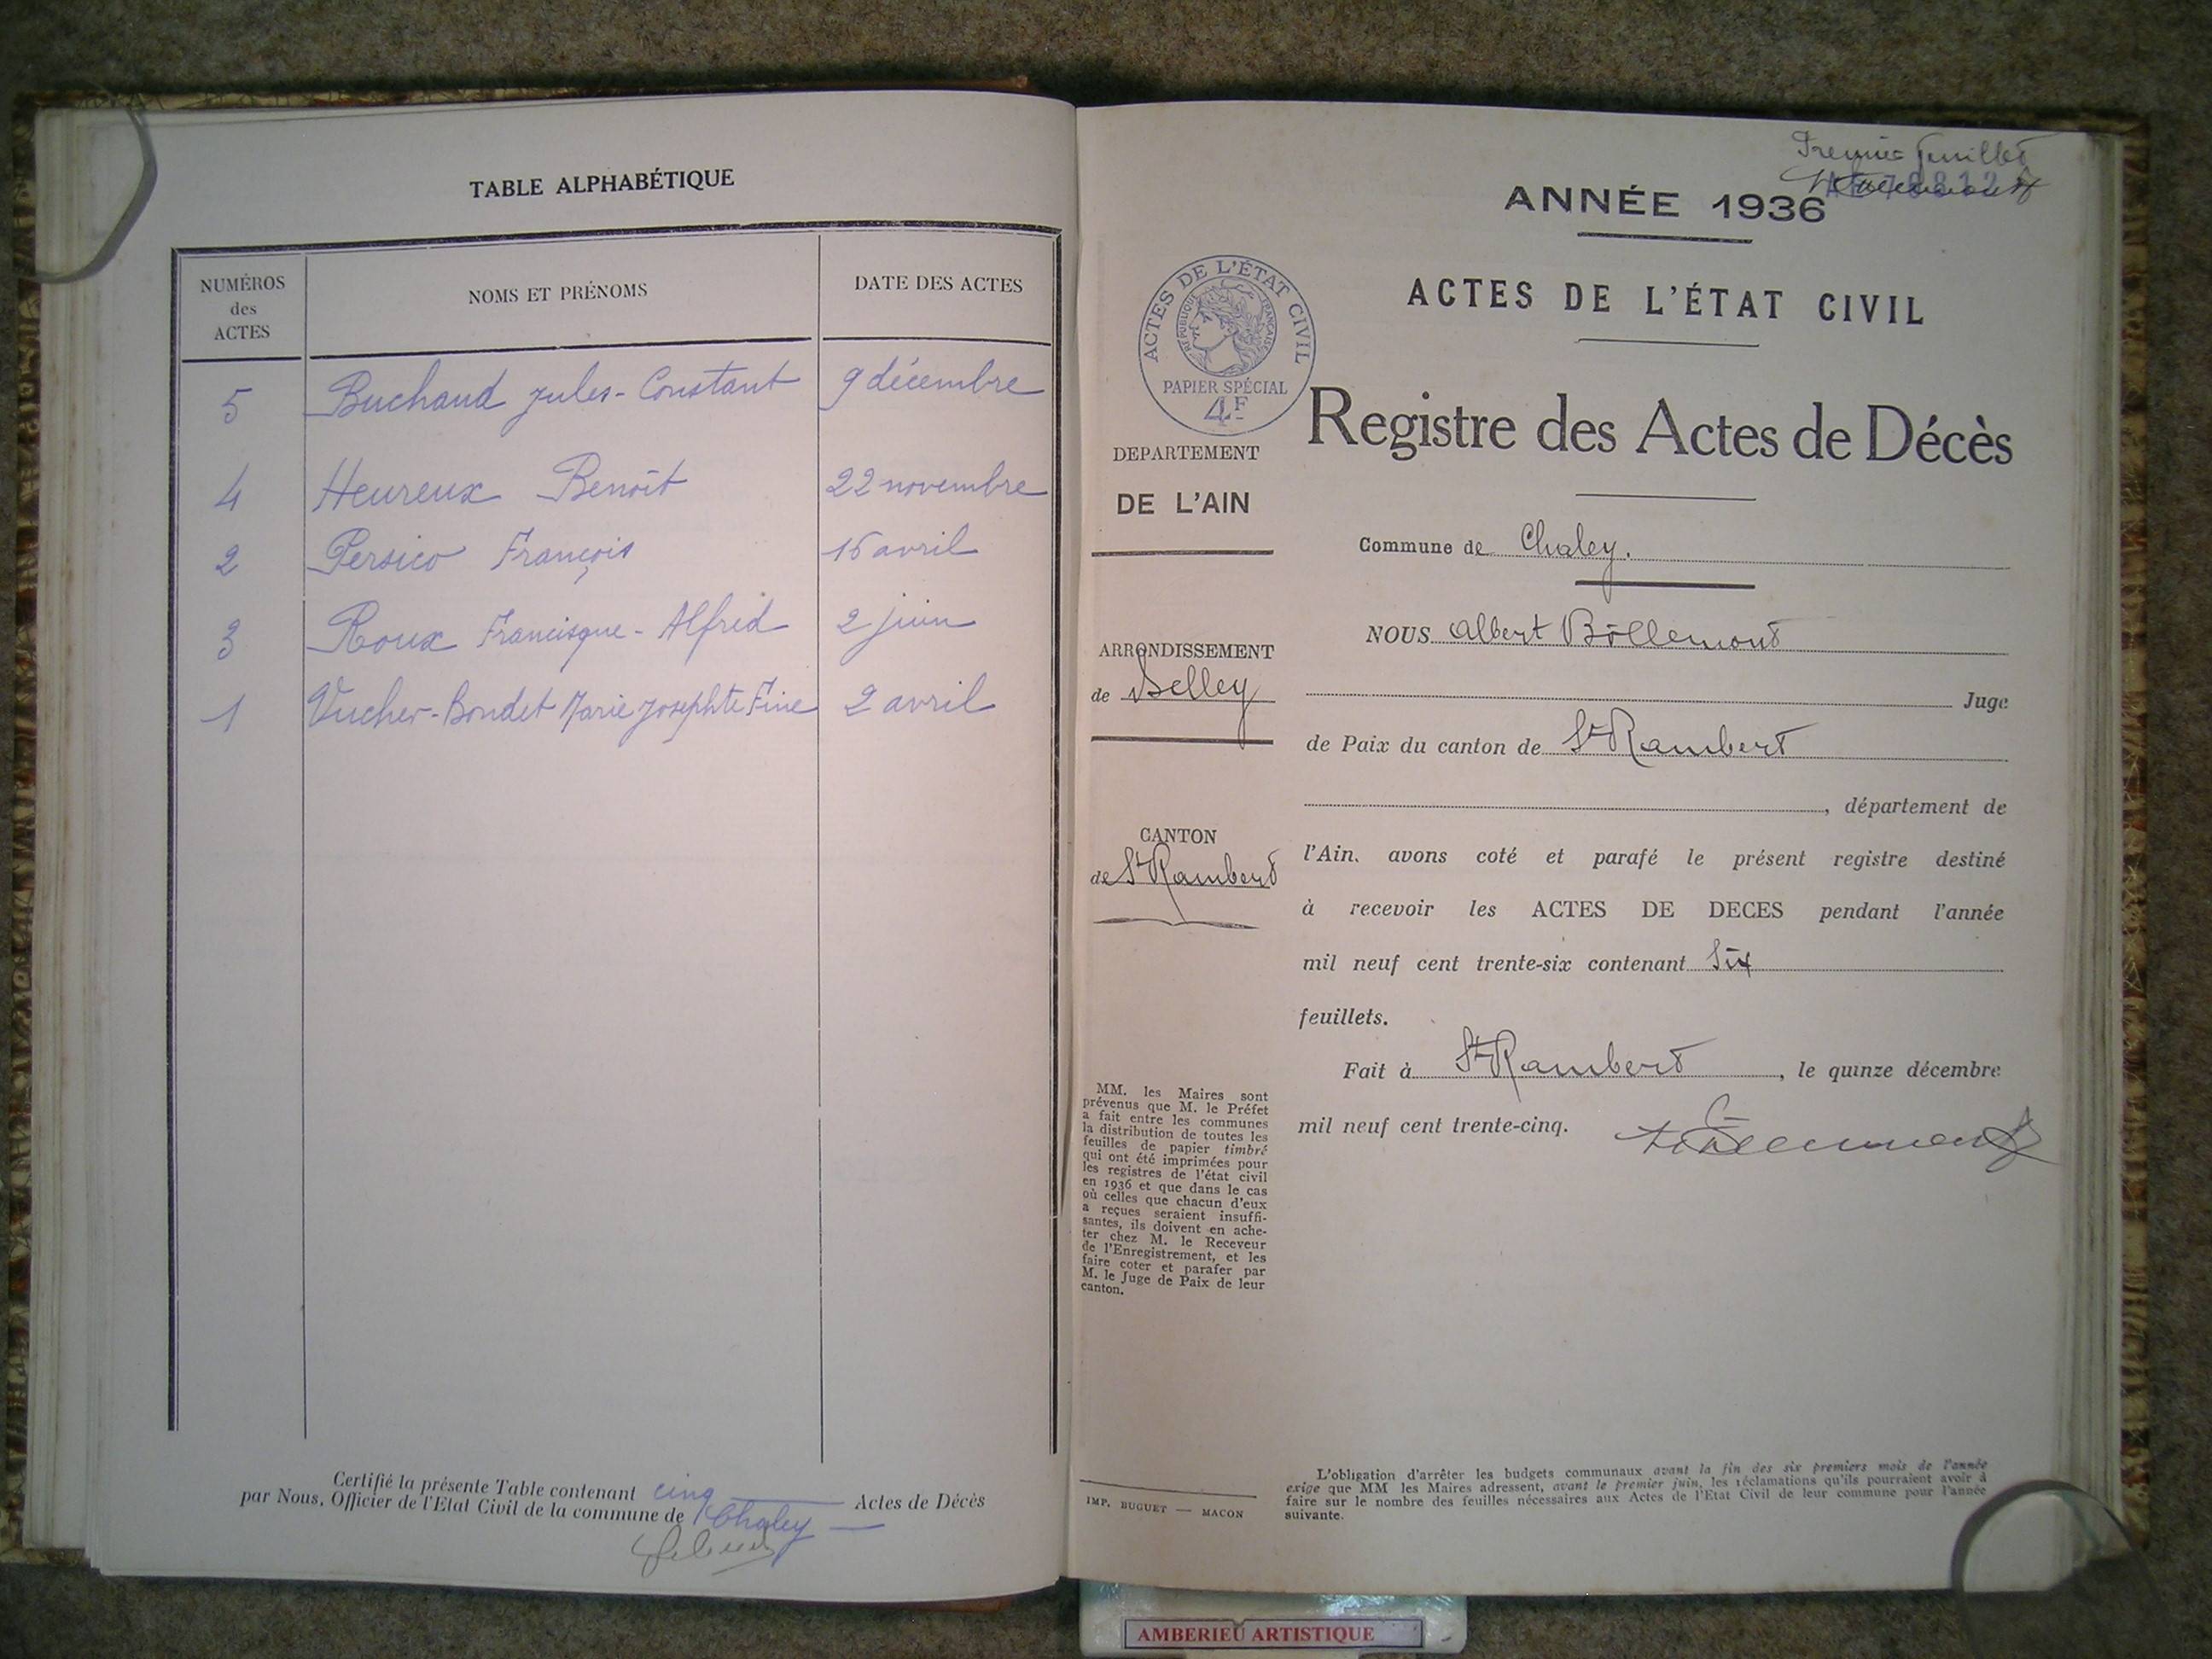 TABLE ALPHABÉTIQUE
NUMÉROS des ACTES
NOMS ET PRÉNOMS
DATE DES ACTES
5 Buchaud Jules-Constant 9 décembre
4 Heureux Benoît 22 novembre
2 Persico François 15 avril
3 Roux Francisque-Alfred 2 juin
1 Vucher-Bondet Marie Josephte Fine 2 avril
Certifié la présente Table contenant cinq Actes de Décès
par Nous, Officier de l'Etat Civil de la commune de Chaley
Premier feuillet
ANNÉE 1936
ACTES DE L'ÉTAT CIVIL
ACTES DE L'ÉTAT CIVIL
RÉPUBLIQUE FRANÇAISE
PAPIER SPÉCIAL
4F
Registre des Actes de Décès
DEPARTEMENT
DE L'AIN
Commune de Chaley.
NOUS Albert Bollemont
ARRONDISSEMENT
de Belley
Juge
de Paix du canton de St Rambert
, département de
CANTON
de St Rambert
l'Ain, avons coté et parafé le présent registre destiné
à recevoir les ACTES DE DECES pendant l'année
mil neuf cent trente-six contenant Six
feuillets.
Fait à St Rambert, le quinze décembre
mil neuf cent trente-cinq.
MM. les Maires sont
prévenus que M. le Préfet
a fait entre les communes
la distribution de toutes les
feuilles de papier timbré
qui ont été imprimées pour
les registres de l'état civil
en 1936 et que dans le cas
où celles que chacun d'eux
a reçues seraient insuffi-
santes, ils doivent en ache-
ter chez M. le Receveur
de l'Enregistrement, et les
faire coter et parafer par
M. le Juge de Paix de leur
canton.
IMP. BUGUET — MACON
L'obligation d'arrêter les budgets communaux avant la fin des six premiers mois de l'année
exige que MM les Maires adressent, avant le premier juin, les réclamations qu'ils pourraient avoir à
faire sur le nombre des feuilles nécessaires aux Actes de l'Etat Civil de leur commune pour l'année
suivante.
AMBERIEU ARTISTIQUE